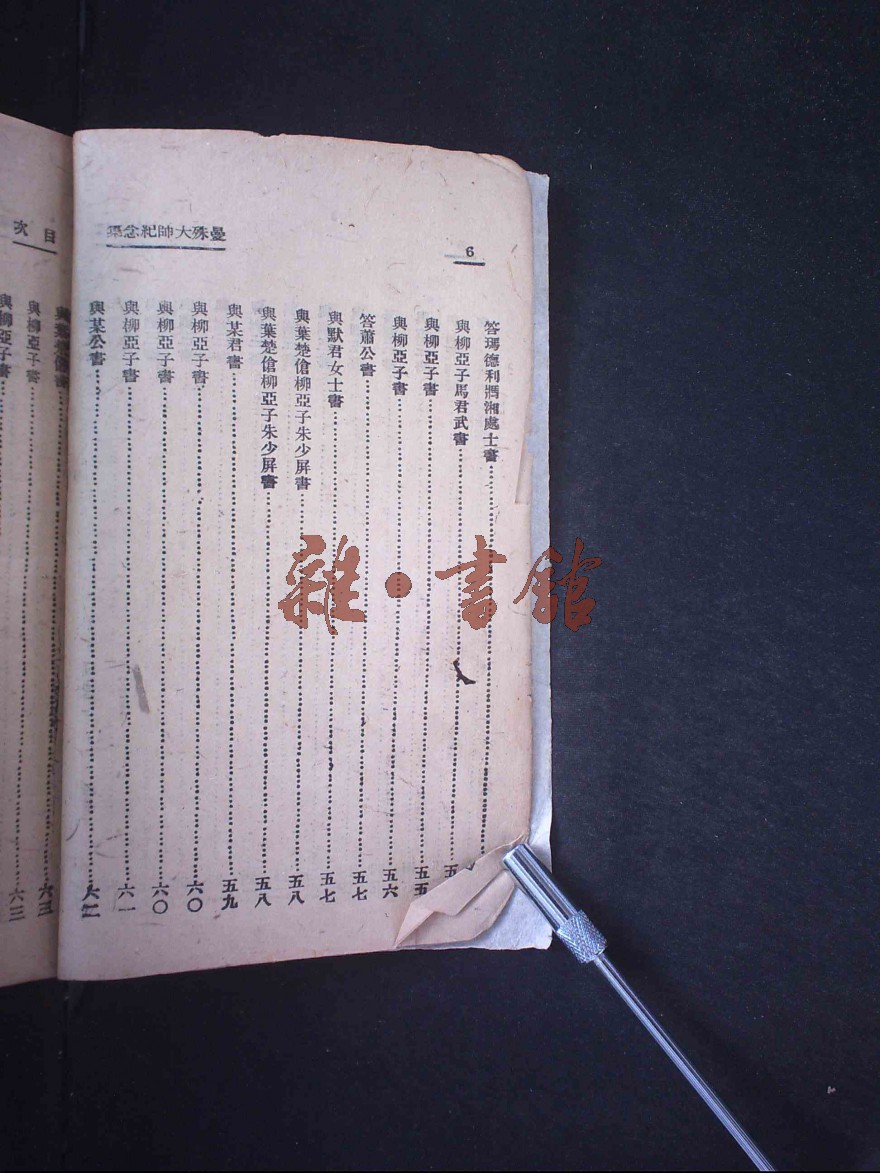 6
曼殊大師紀念集
答瑪德利馬湘處士書
與柳亞子馬君武書……五
與柳亞子書……五五
與柳亞子書……五六
答蕭公書……五七
與默君女士書……五七
與葉楚傖柳亞子朱少屏書……五八
與葉楚傖柳亞子朱少屏書……五八
與某君書……五九
與柳亞子書……六〇
與柳亞子書……六〇
與柳亞子書……六一
與某公書……六二
目次
與葉楚傖書……六三
與柳亞子書……六三
與柳亞子書
雜·書館